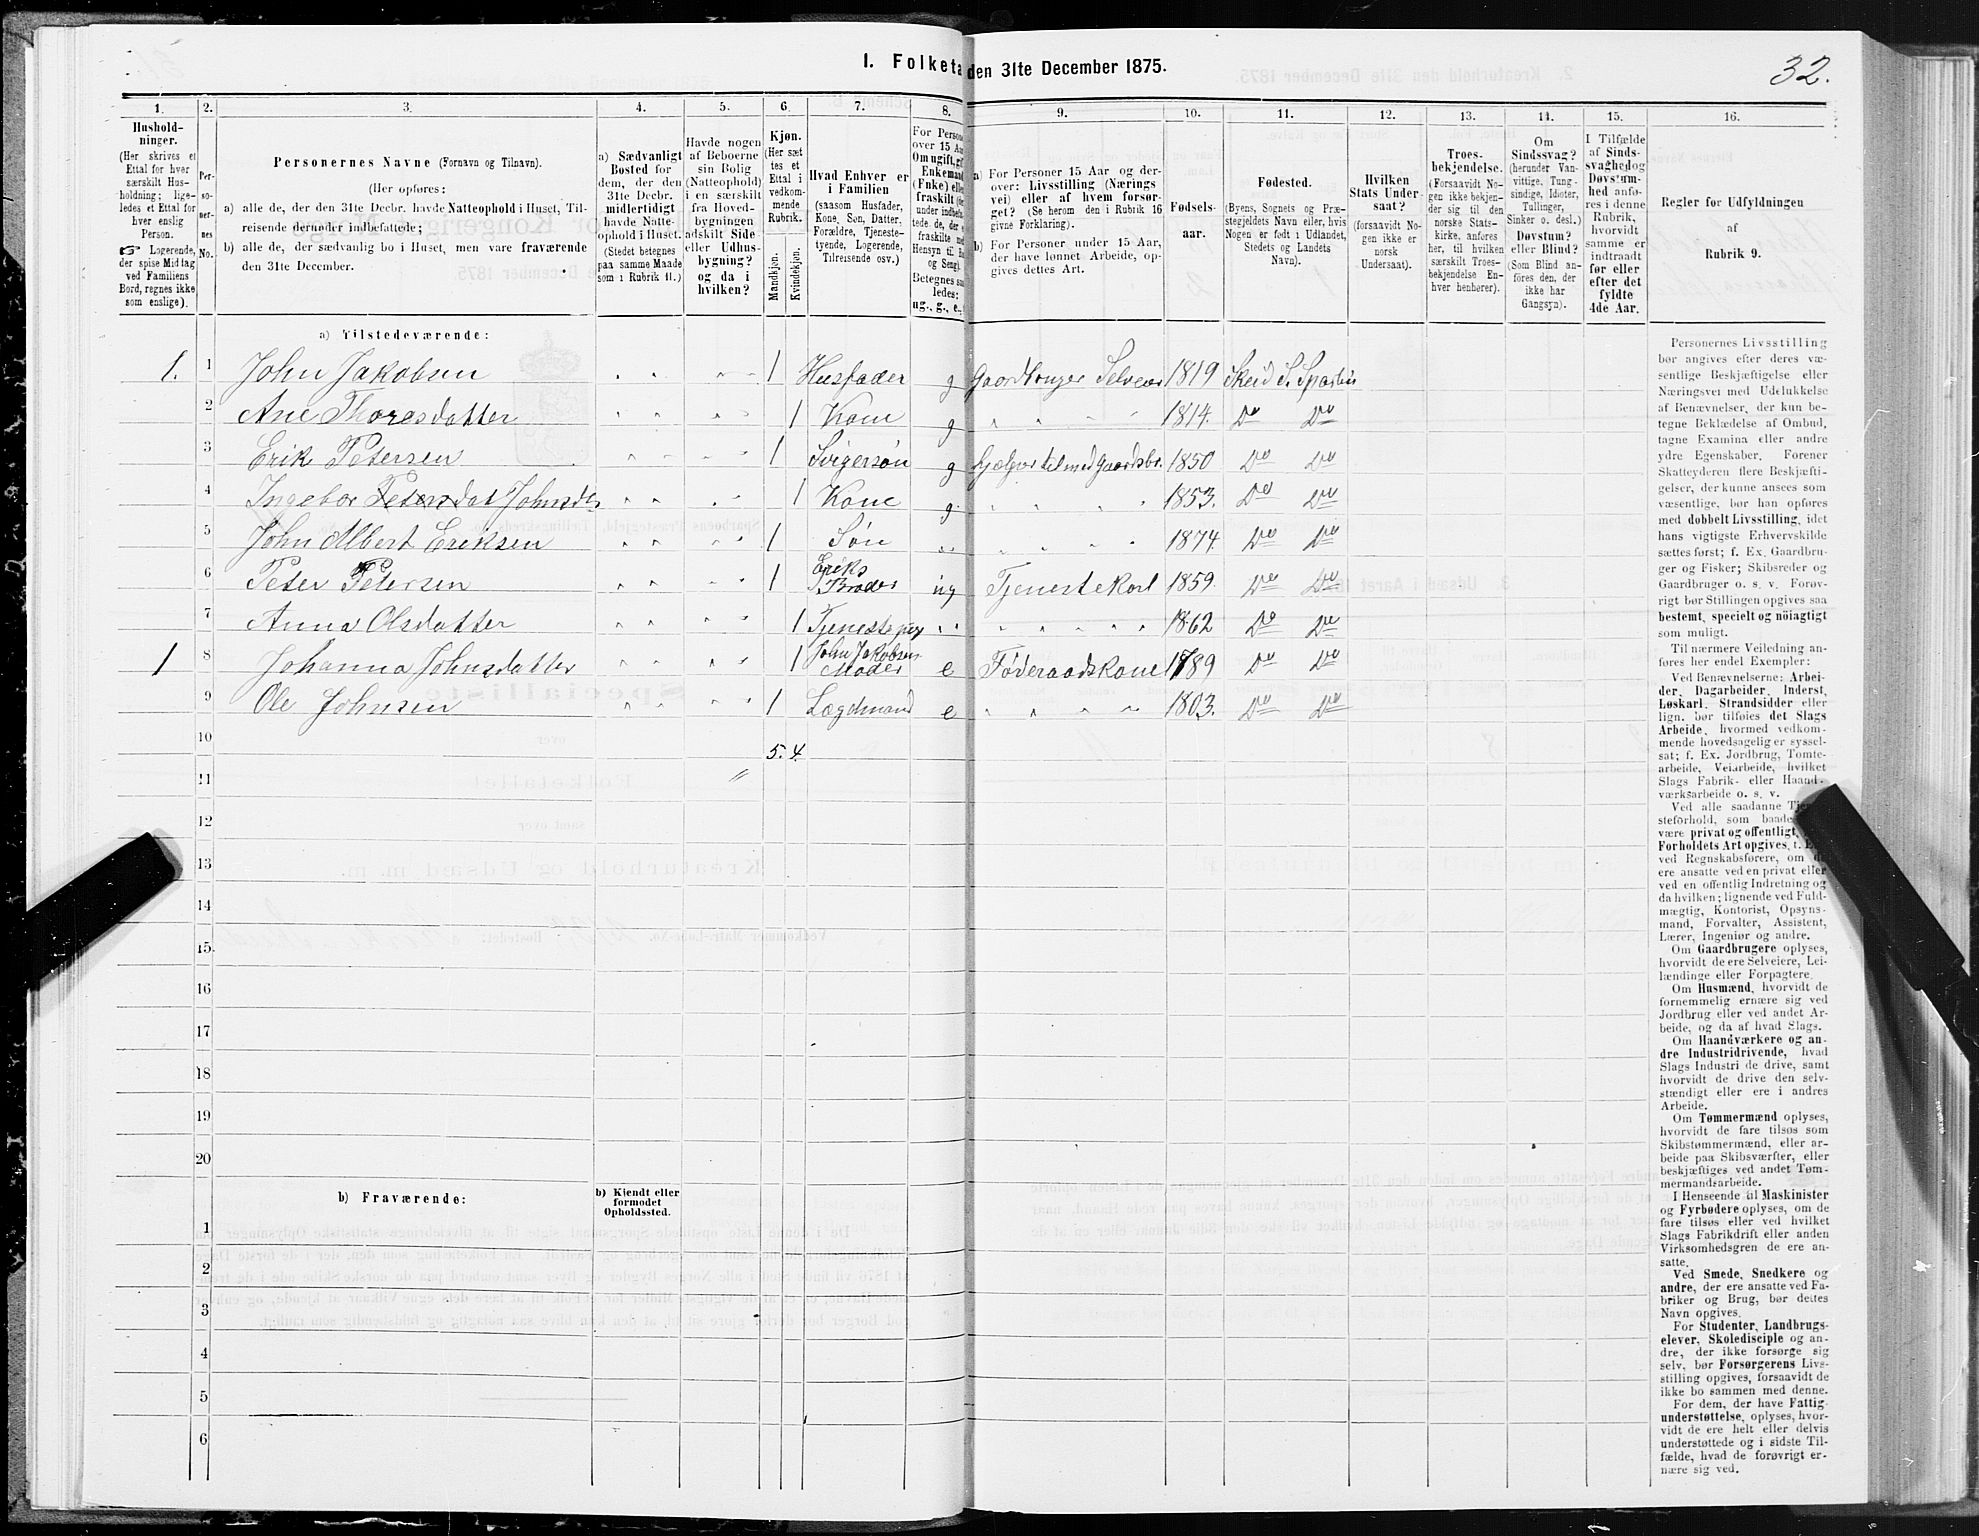 32.
1. Folketa den 31te December 1875.
1. 2. 3. 4. 5. 6. 7. 8. 9. 10. 11. 12. 13. 14. 15. 16.
Hushold-
ninger.
(Her skrives et
Ettal for hver
særskilt Hus-
holdning; lige-
ledes et Ettal for
hver enslig
Person.
☞ Logerende,
der spise Middag
ved Familiens
Bord, regnes ikke
som enslige).
Per-
so-
ner-
nes
No.
Personernes Navne (Fornavn og Tilnavn).
(Her opføres:
a) alle de, der den 31te Decbr. havde Natteophold i Huset, Til-
reisende derunder indbefattede;
b) alle de, der sædvanlig bo i Huset, men vare fraværende
den 31te December.
a) Sædvanligt
Bosted for
dem, der den
31te Decbr.
midlertidigt
havde Natte-
ophold i Huset.
(Stedet betegnes
paa samme Maade
som i Rubrik 11.)
Havde nogen
af Beboerne
sin Bolig
(Natteophold)
i en særskilt
fra Hoved-
bygningen
adskilt Side
eller Udhus-
bygning?
og da i
hvilken?
Kjøn.
(Her sæt-
tes et
Ettal i
vedkom-
mende
Rubrik.
Mandkjøn.
Kvindekjøn.
Hvad Enhver er
i Familien
(saasom Husfader,
Kone, Søn, Datter,
Forældre, Tjeneste-
tyende, Logerende,
Tilreisende osv.)
For Persone
over 15 Aa
Om ugift, gif
Enkemand
(Fnke) elle
fraskilt (for
under indbefat-
tede de, der e
fraskilte me
Hensyn til Bo
og Seng).
Betegnes saa
ledes:
ug., g., e.,
a) For Personer 15 Aar og der-
over: Livsstilling (Nærings
vei) eller af hvem forsør-
get? (Se herom den i Rubrik 16
givne Forklaring).
b) For Personer under 15 Aar,
der have lønnet Arbeide, op-
gives dettes Art.
Fødsels-
aar.
Fødested.
(Byens, Sognets og Præ-
stegjeldets Navn eller, hvis
Nogen er født i Udlandet,
Stedets og Landets
Navn).
Hvilken
Stats Under-
saat?
(forsaavidt No-
gen ikke er
norsk
Undersaat).
Troes-
bekjendelse.
(Forsaavidt No-
gen ikke bekjen-
der sig til den
norske Stats-
kirke, anføres
her, til hvilken
særskilt Troes-
bekjendelse En-
hver henhører).
Om
Sindssvag?
(herunder Van-
vittige, Tung-
sindige, Idioter,
Tullinger,
Sinker o. desl.)
Døvstum?
eller Blind?
(Som Blind an-
føres den, der
ikke har
Gangsyn).
I Tilfælde
af Sinds-
svaghed og
Døvstum-
hed anfø-
res i denne
Rubrik,
hvorvidt
samme er
indtraadt
før eller
efter det
fyldte
4de Aar.
Regler for Udfyldningen
af
Rubrik 9.
a) Tilstedeværende:
1. 1 John Jakobsen " " " " 1 Husfader g Gaardbruger Selveier 1819 Skeid S. Sparbu
2 Ane Thoresdatter " " " " 1 Kone g " " " " 1814. Do Do
3 Erik Petersen " " " " 1 Svigersøn g Hjælper til med Gaardsbr. 1850 Do Do
4 Ingebor Petersdat Johnsdr " " " " 1 Kone g. " " " " 1853. Do Do
5 John Albert Eriksen " " " " 1 Søn " " " " " " 1874. Do Do
6 Peter Petersen " " " " 1 Eriks Broder ug Tjenestekarl 1859. Do Do
7 Anna Olsdatter " " " " 1 Tjenestepige " " " " " " " 1862 Do Do
1 8 Johanna Johnsdatter " " " " 1 John Jakobsens Moder e Føderaadskone 1789 Do Do
9 Ole Johnsen " " " " 1 Lægdmand e " " " " 1803. Do Do
10 5. 4.
11 "
12
13
14
15.
16
17
18
19
20
b) Fraværende:
b) Kjendt eller
formodet
Opholdssted.
1
2
3
4
5
6
Personernes Livsstilling
bør angives efter deres væ-
sentlige Beskjæftigelse eller
Næringsvei med Udelukkelse
af Benævnelser, der kun be-
tegne Beklædelse af Ombud,
tagne Examina eller andre
ydre Egenskaber. Forener
Skatteyderen flere Beskjæfti-
gelser, der kunne ansees som
væsentlige, bør han opføres
med dobbelt Livsstilling, idet
hans vigtigste Erhvervskilde
sættes først; f. Ex. Gaardbru-
ger og Fisker; Skibsreder og
Gaardbruger o. s. v. Forøv-
rigt bør Stillingen opgives saa
bestemt, specielt og nöiagtigt
som muligt.
Til nærmere Veiledning an-
føres her endel Exempler:
Ved Benævnelserne: Arbei-
der, Dagarbeider, Inderst,
Løskarl, Strandsidder eller
lign. bør tilføies det Slags
Arbeide, hvormed vedkom-
mende hovedsagelig er syssel-
sat; f. Ex. Jordbrug, Tomte-
arbeide, Veiarbeide, hvilket
Slags Fabrik- eller Haand-
værksarbeide o. s. v.
Ved alle saadanne
steforhold, som baade
være privat og offentligt,
Forholdets Art opgives, t.
ved Regnskabsførere, om
ere ansatte ved en privat eller
ved en offentlig Indretning og
da hvilken; lignende ved Fuld-
mægtig, Kontorist, Opsyns-
mand, Forvalter, Assistent,
Lærer, Ingeniør og andre.
Om Gaardbrugere oplyses,
hvorvidt de ere Selveiere, Lei-
lændinge eller Forpagtere.
Om Husmænd, hvorvidt de
fornemmelig ernære sig ved
Jordbrug eller ved andet Ar-
beide, og da af hvad Slags.
Om Haandværkere og an-
dre Industridrivende, hvad
Slags Industri de drive, samt
hvorvidt de drive den selv-
stændigt eller ere i andres
Arbeide.
Om Tømmermænd oplyses,
hvorvidt de fare tilsøs som
Skibstømmermænd, eller ar-
beide paa Skibsværfter, eller
beskjæftiges ved andet Tøm-
mermandsarbeide.
I Henseende til Maskinister
og Fyrbødere oplyses, om de
fare tilsøs eller ved hvilket
Slags Fabrikdrift eller anden
Virksomhedsgren de ere an-
satte.
Ved Smede, Snedkere og
andre, der ere ansatte ved Fa-
briker og Brug, bør dettes
Navn opgives.
For Studenter, Landbrugs-
elever, Skoledisciple og an-
dre, der ikke forsørge sig
selv, bør Forsørgerens Livs-
stilling opgives, forsaavidt de
ikke bo sammen med denne.
For dem, der have Fattig-
understøttelse, oplyses, hvor-
vidt de ere helt eller delvis
understøttede og i sidste Til-
fælde, hvad de forøvrigt er-
nære sig ved.